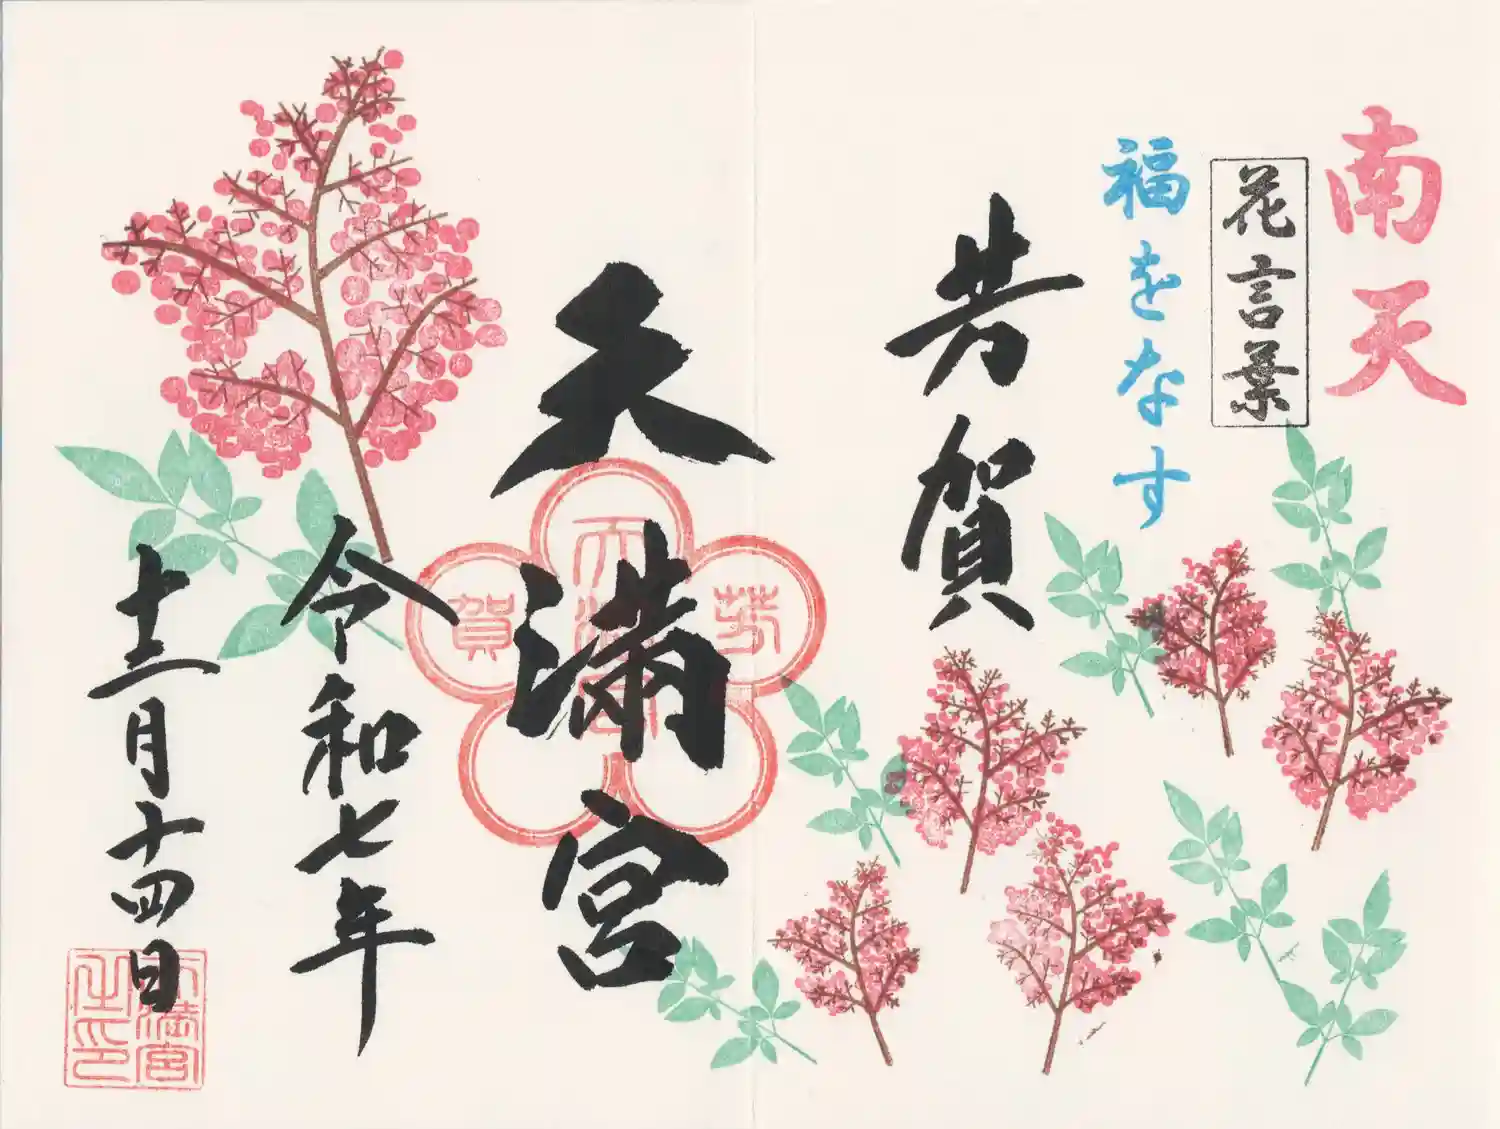 南天
花言葉
福をなす
芳賀
天満宮
令和七年
十二月十四日
芳
賀
天満宮
天満宮
之印